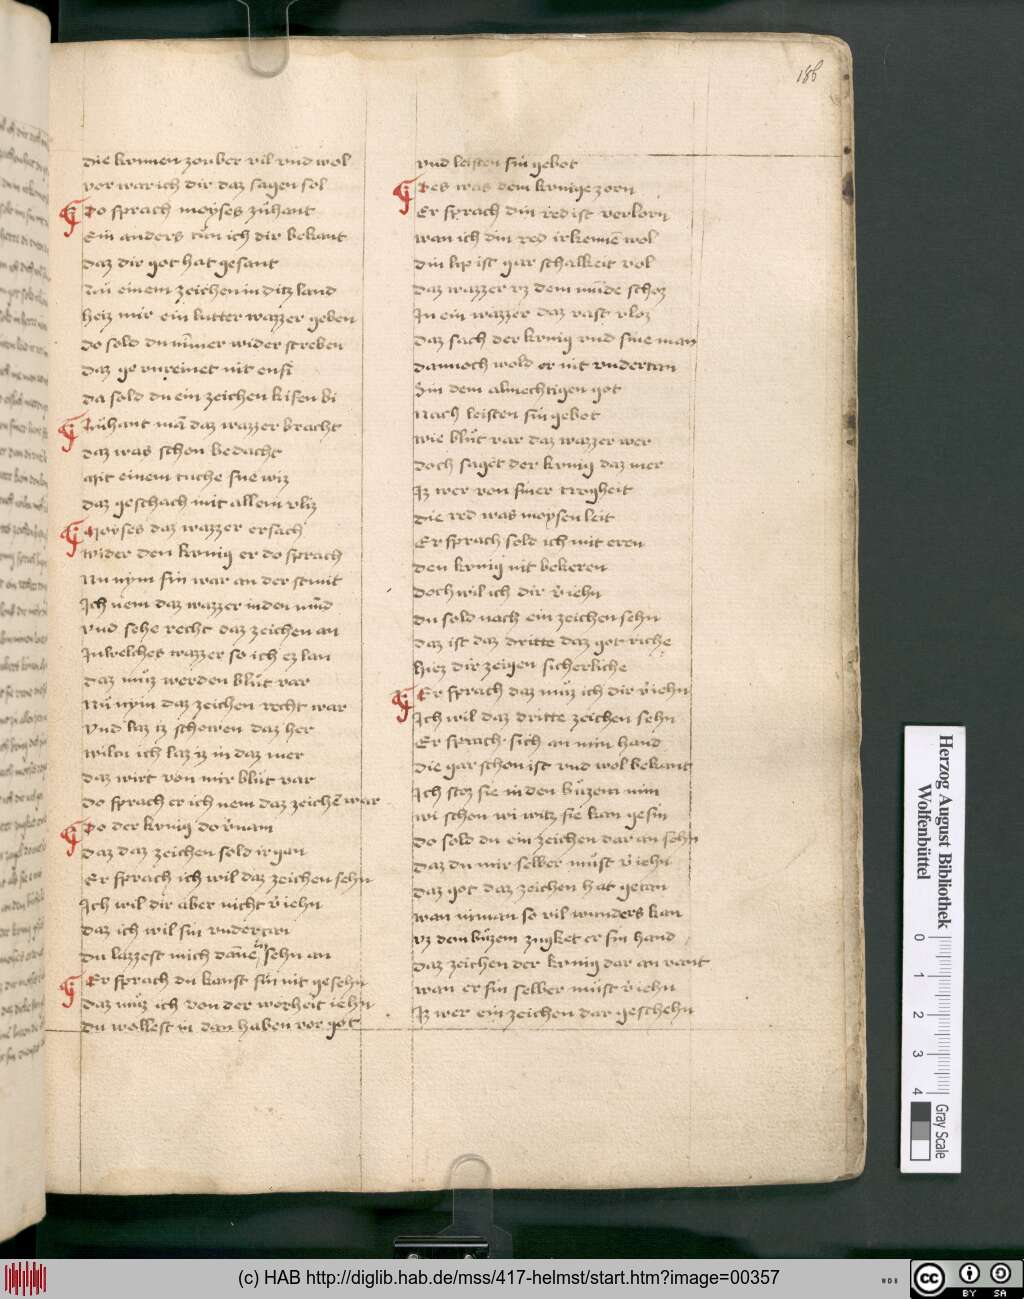 186
die kunnen zouber vil vnd wol
vor war ich dir daz sagen sol
Do sprach moyses zuͤhant
Ein anders tuͤn ich dir bekant
daz dir got hat gesant
Zuͤ einem zeichen in ditz land
heiz mir ein lutter wazzer geben
do sold du nim̄er wider streben
daz ge vnreinet nit ensi
da sold du ein zeichen kisen bi
Zuͤhant mā daz wazzer bracht
daz was schon bedacht
Mit einem tuche sne wiz
daz geschach mit allem vliz
Moyses daz wazzer ersach
wider den kvnig er do sprach
Nu nym sin war an der stunt
Ich nem daz wazzer in den mūd
vnd sehe recht daz zeichen an
In welches wazzer so ich ez lan
daz muͤz werden bluͤt var
Nu nym daz zeichen recht war
Vnd laz iz schowen daz her
wiltu ich laz iz in daz mer
daz wirt von mir bluͤt var
do sprach er ich nem daz zeichē war
Do der kvnig do v̄nam
daz daz zeichen sold irgan
Er sprach ich wil daz zeichen sehn
Ich wil dir aber nicht v̄iehn
daz ich wil sin vndertan
du lazzest mich dānē sehn an
Er sprach du kanst sin nit gesehn
daz muͤz ich von der worheit iehn
du wollest in dan haben vor got
vnd leisten sin gebot
Des was dem kvnige zorn
Er sprach din red ist verlorn
wan ich din red irkennē wol
din lip ist gar schalkeit vol
daz wazzer vz dem mūde schoz
In ein wazzer daz vast vloz
daz sach der kvnig vnd sine man
dannoch wold er nit vndertan
Sin dem almechtigen got
Nach leisten sin gebot
wie bluͤt var daz wazzer wer
doch saget der kvnig daz mer
Iz wer von siner trogheit
die red was moysen leit
Er sprach sold ich mit eren
den kvnig nit bekeren
doch wil ich dir v̄iehn
du sold nach ein zeichen sehn
daz ist daz dritte daz got riche
hiez dir zeigen sicherliche
Er sprach daz muͤz ich dir v̄iehn
Ich wil daz dritte zeichen sehn
Er sprach sich an min hand
die gar schon ist vnd wol bekant
Ich stoz sie in den buͤzem min
wi schon wi witz sie kan gesin
do sold du ein zeichen dar an sehn
daz du mir selber muͤst v̄iehn
daz got daz zeichen hat getan
wan niman so vil wunders kan
vz dem buͤzem zugket er sin hand
daz zeichen der kvnig dar an vant
wan er sin selber muͤst v̄iehn
Iz wer ein zeichen dar geschehn
Herzog August Bibliothek
Wolfenbüttel
0 1 2 3 4
Gray Scale
(c) HAB http://diglib.hab.de/mss/417-helmst/start.htm?image=00357
WDB
cc BY SA